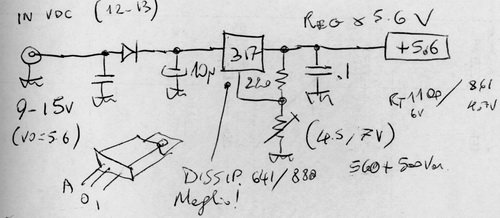 IN VDC (12-13)
REG x 5.6 V
317
+5.6
10µ
220
.1
9-15V
(VO=5.6)
RT 1100/
6V
861
4.7V
(4.5, 7V)
560+500Var
A O I
DISSIP. 641/880
Meglio!